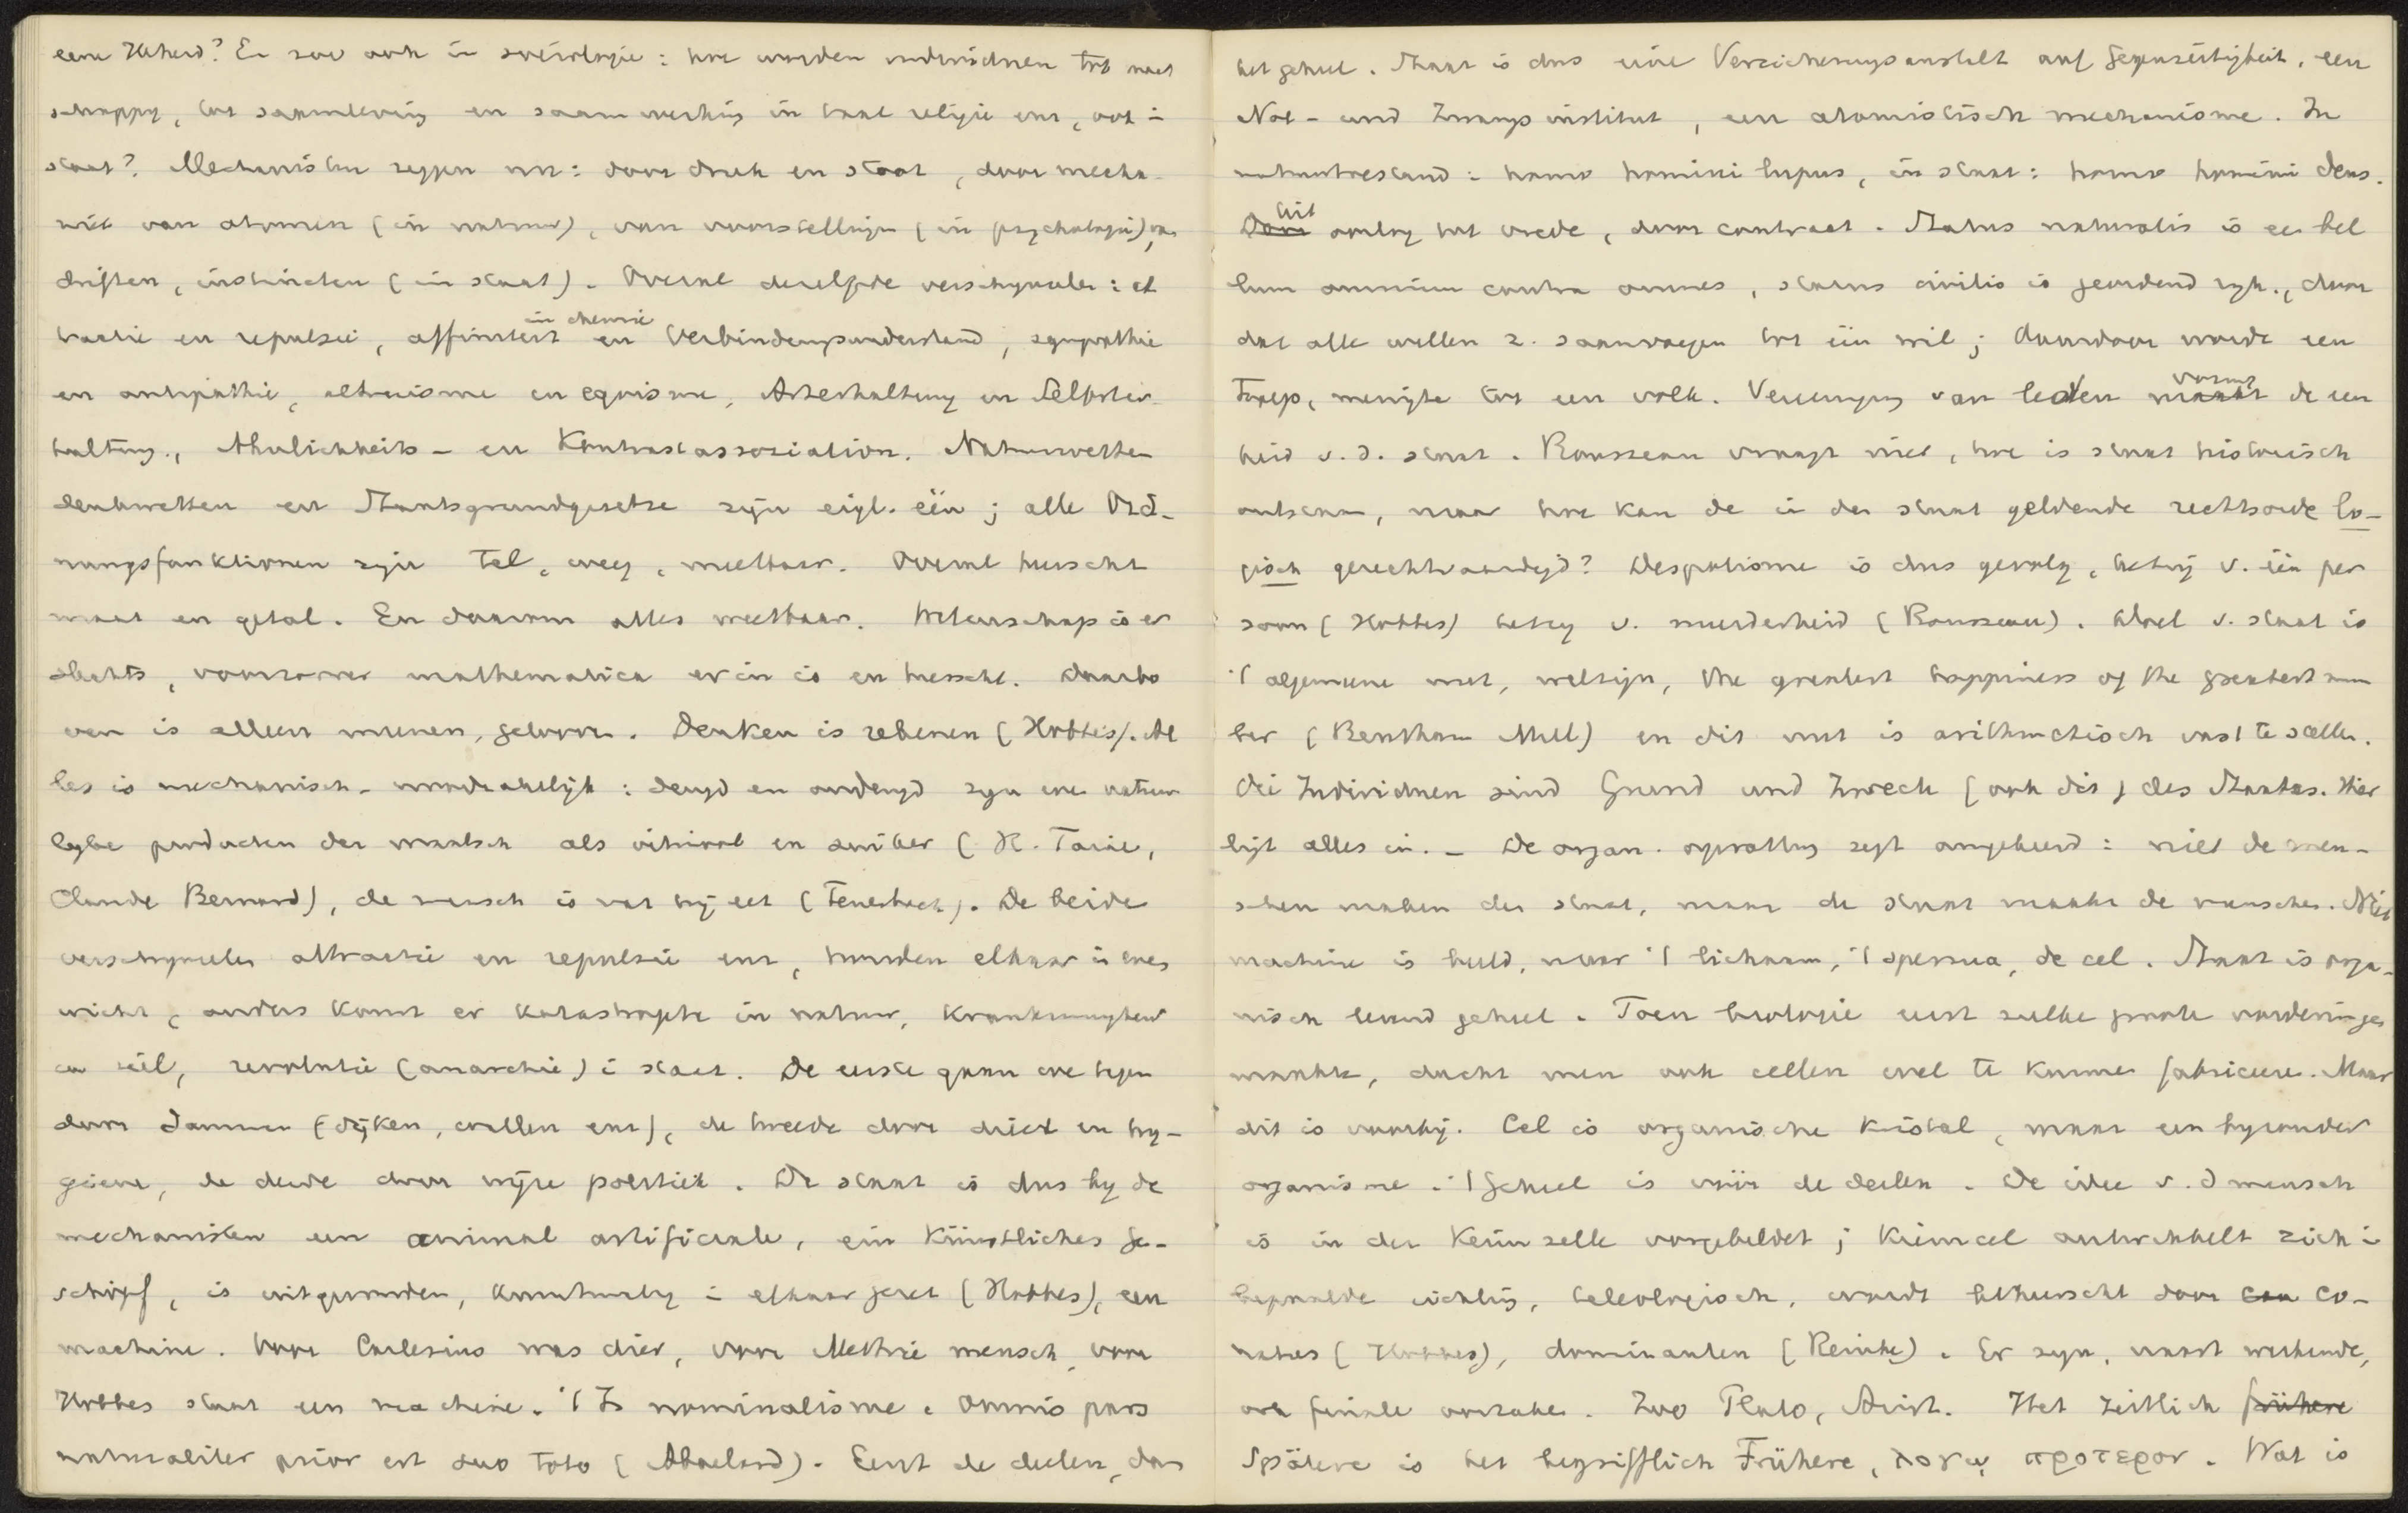 eene Hoheid? En zoo ook in sociologie: hoe worden individuen tot maat
schappy, tot samenleving en saamwerking in taal religie enz, ook i
staat? Mechanisten zeggen nu: door druk en stoot, door mecha-
niek van atomen (in natuur), van voorstellingen (in psychologie), van
driften, instincten (in staat). Overal dezelfde verschynselen: at
tractie en repulsie, affiniteit en Verbindungswiderstand in chemie, sympathie
en antipathie, altruisme en egoisme, Arterhaltung en Selbster-
haltung, Ähnlichkeits- en Kontrastassoziation. Natuurwetten
denkwetten en Staatsgrundgesetze zyn eigl. één; alle Ord-
nungsfunktionen zyn tel, weeg, meetbaar. Overal heerscht
maat en getal. En daarom alles weetbaar. Wetenschap is er
slechts, voorzoover mathematica er in is en heerscht. Daarbo
ven is alleen meenen, gelooven. Denken is rekenen (Hobbes). Al
les is mechanisch-noodzakelijk: deugd en ondeugd zyn even natuur
lyke producten der maatsch als vitriool en suiker (H. Taine,
Claude Bernard), de mensch is wat hij eet (Feuerbach). De beide
verschynselen attractie en repulsie enz, houden elkaar in even
wicht, anders komt er katastrophe in natuur, krankzinnigheid
in ziel, revolutie (anarchie) i staat. De eerste gaan we tegen
door dammen (dijken, wallen enz), de tweede door dieet en hy-
giene, de derde door wijze politiek. De staat is dus by de
mechanisten een animal artificiale, ein künstliches Ge-
schöpf, is uitgevonden, kunstmatig i elkaar gezet (Hobbes), een
machine. Voor Cartesius was dier, voor Mettrie mensch, voor
Hobbes staat een machine. 't Is nominalisme. Omnis pars
naturaliter prior est suo toto (Abaelard). Eerst de deelen, dan
het geheel. Staat is dus eine Versicherungsanstalt auf Gegenseitigkeit, een
Not- und Zwangsinstitut, een atomistisch mechanisme. In
natuurtoestand: homo homini lupus, in staat: homo homini deus.
Door uit oorlog tot vrede, door contract. Status naturalis is een bel
lum omnium contra omnes, status civilis is geordend ryk, door
dat alle willen z. saamvoegen tot één wil; daardoor wordt een
troep, menigte tot een volk. Vereeniging van leden maakt vormt de een
heid v. d. staat. Rousseau vraagt niet, hoe is staat historisch
ontstaan, maar hoe kan de in den staat geldende rechtsorde lo-
gisch gerechtvaardigd? Despotisme is dus gevolg, hetzij v. één per
soon (Hobbes) hetzy v. meerderheid (Rousseau). Doel v. staat is
't algemeene nut, welzijn, the greatest happiness of the greatest num
ber (Bentham Mill) en dit nut is arithmetisch vast te stellen.
Die Individuen sind Grund und Zweck (ook dit) des Staates. Hier
ligt alles in. - De organ. opvatting zegt omgekeerd: niet de men-
schen maken den staat, maar de staat maakt de menschen. Niet
machine is beeld, maar 't lichaam, 't sperma, de cel. Staat is orga-
nisch levend geheel. Toen biologie eerst zulke groote vorderingen
maakte, dacht men ook cellen wel te kunnen fabriceeren. Maar
dit is voorbij. Cel is organische kristal, maar een byzonder
organisme. 't Geheel is vóór de deelen. De idee v. d mensch
is in der Keimzelle vorgebildet; kiemcel ontwikkelt zich i
bepaalde richting, teleologisch, wordt beheerscht door con co-
natus (Hobbes), dominanten (Reinke). Er zyn, naast werkende,
ook finale oorzaken. Zoo Plato, Arist. Het zeitlich frühere
Spätere is het begrifflich Frühere, λογῳ προτερον. Wat is